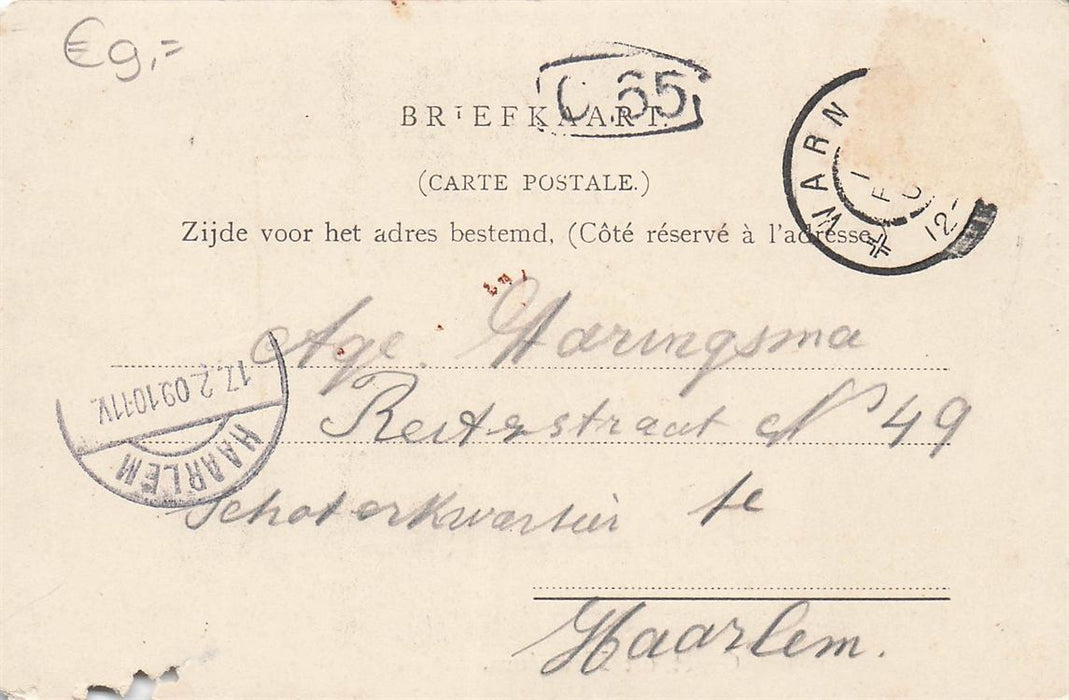 €9,=
C.65
BRIEFKAART.
(CARTE POSTALE.)
Zijde voor het adres bestemd, (Côté réservé à l'adresse.)
WARN
12-
Age. Haringsma
Reiterstraat No 49
Schoterkwartier te
Haarlem.
17.2.09.10-11V.
HAARLEM